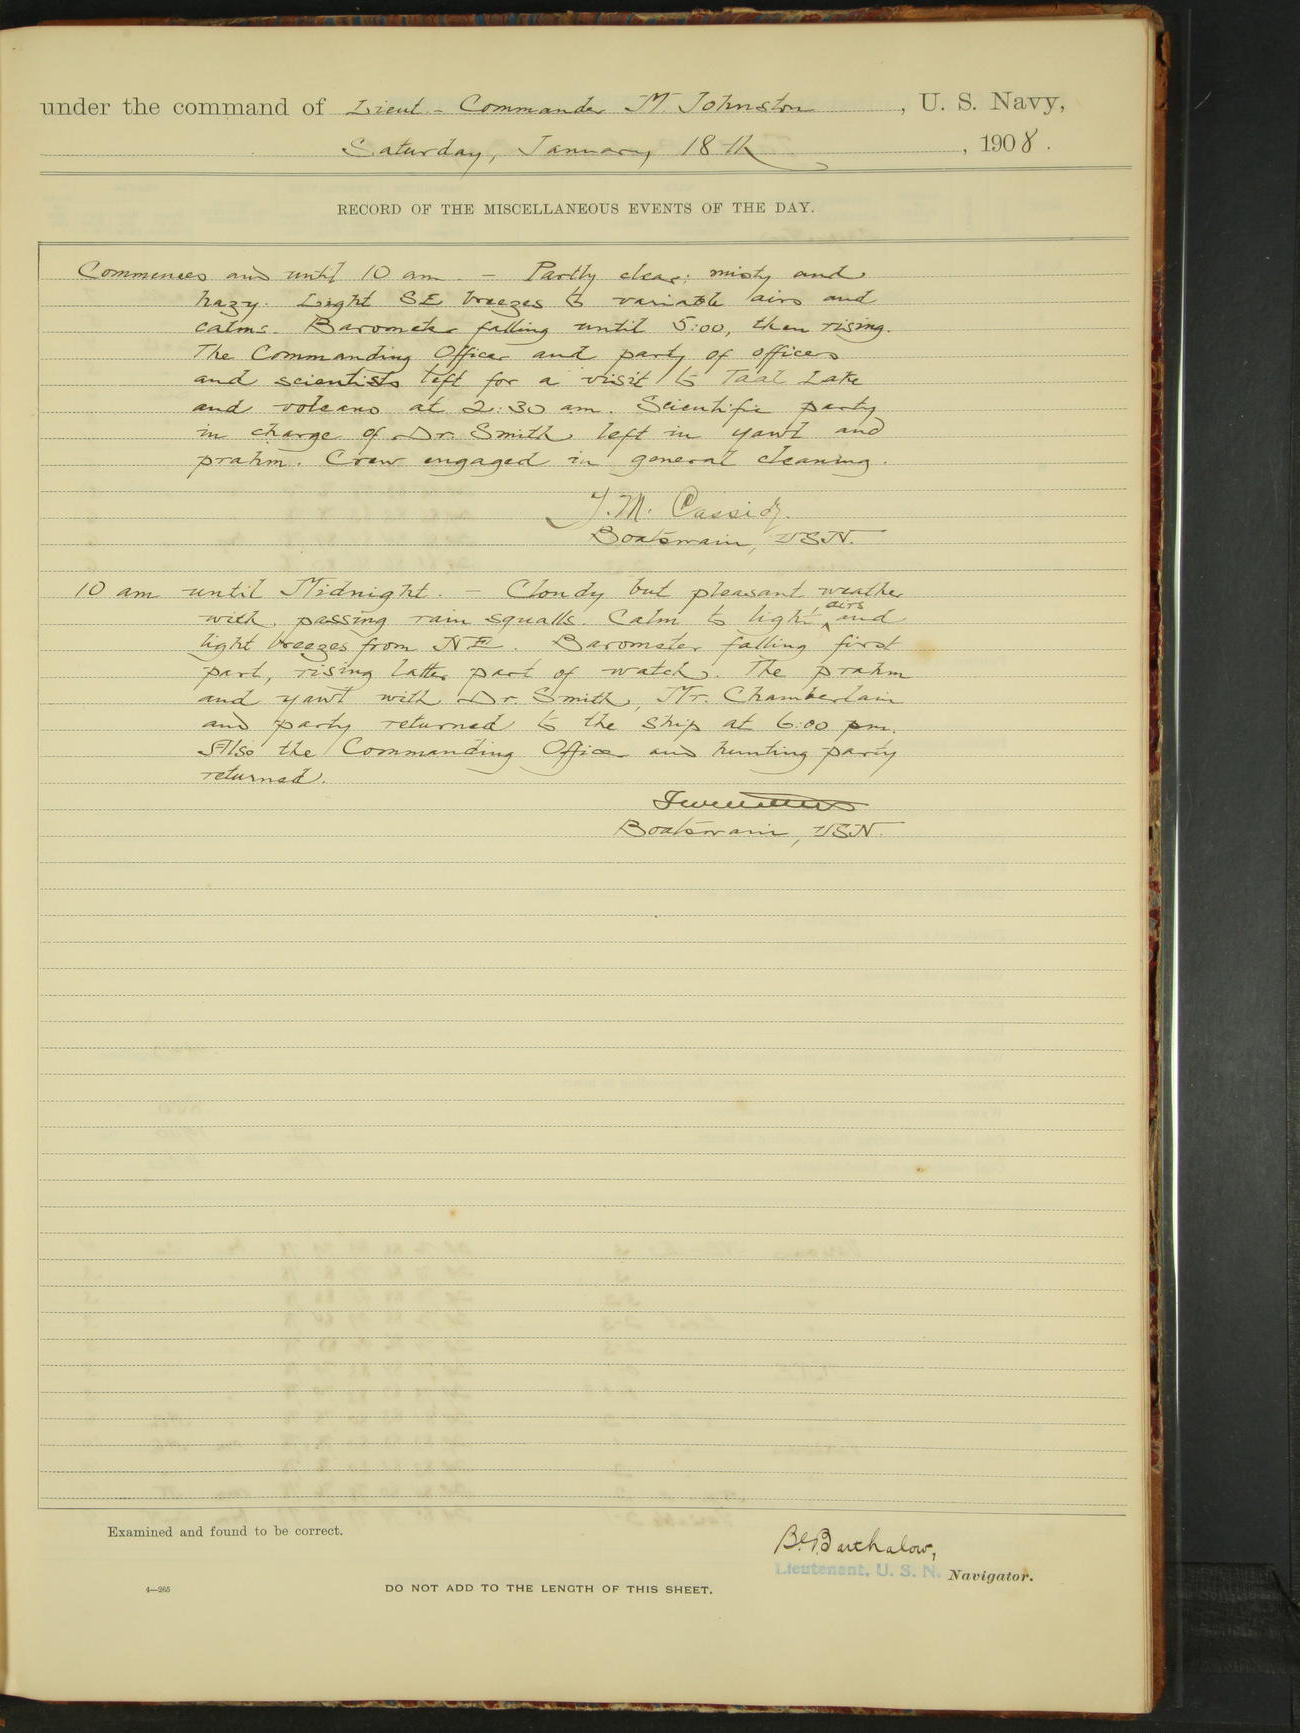 under the command of Lieut.- Commander M. Johnston, U. S. Navy,
Saturday, January 18th, 1908.
RECORD OF THE MISCELLANEOUS EVENTS OF THE DAY.
Commences and until 10 am. - Partly clear; misty and
hazy. Light SE breezes to variable airs and
calms. Barometer falling until 5:00, then rising.
The Commanding Officer and party of officers
and scientists left for a visit to Taal Lake
and volcano at 2:30 am. Scientific party
in charge of Dr. Smith left in yawl and
prahm. Crew engaged in general cleaning.
J. M. Cassidy.
Boatswain, USN.
10 am until Midnight. - Cloudy but pleasant weather
with passing rain squalls. Calm to light airs and
light breezes from NE. Barometer falling first
part, rising latter part of watch. The prahm
and yawl with Dr. Smith, Mr. Chamberlain
and party returned to the ship at 6:00 pm.
Also the Commanding Officer and hunting party
returned.
Boatswain, USN.
Examined and found to be correct.
Barthalow,
Lieutenant, U. S. N. Navigator.
4—265
DO NOT ADD TO THE LENGTH OF THIS SHEET.